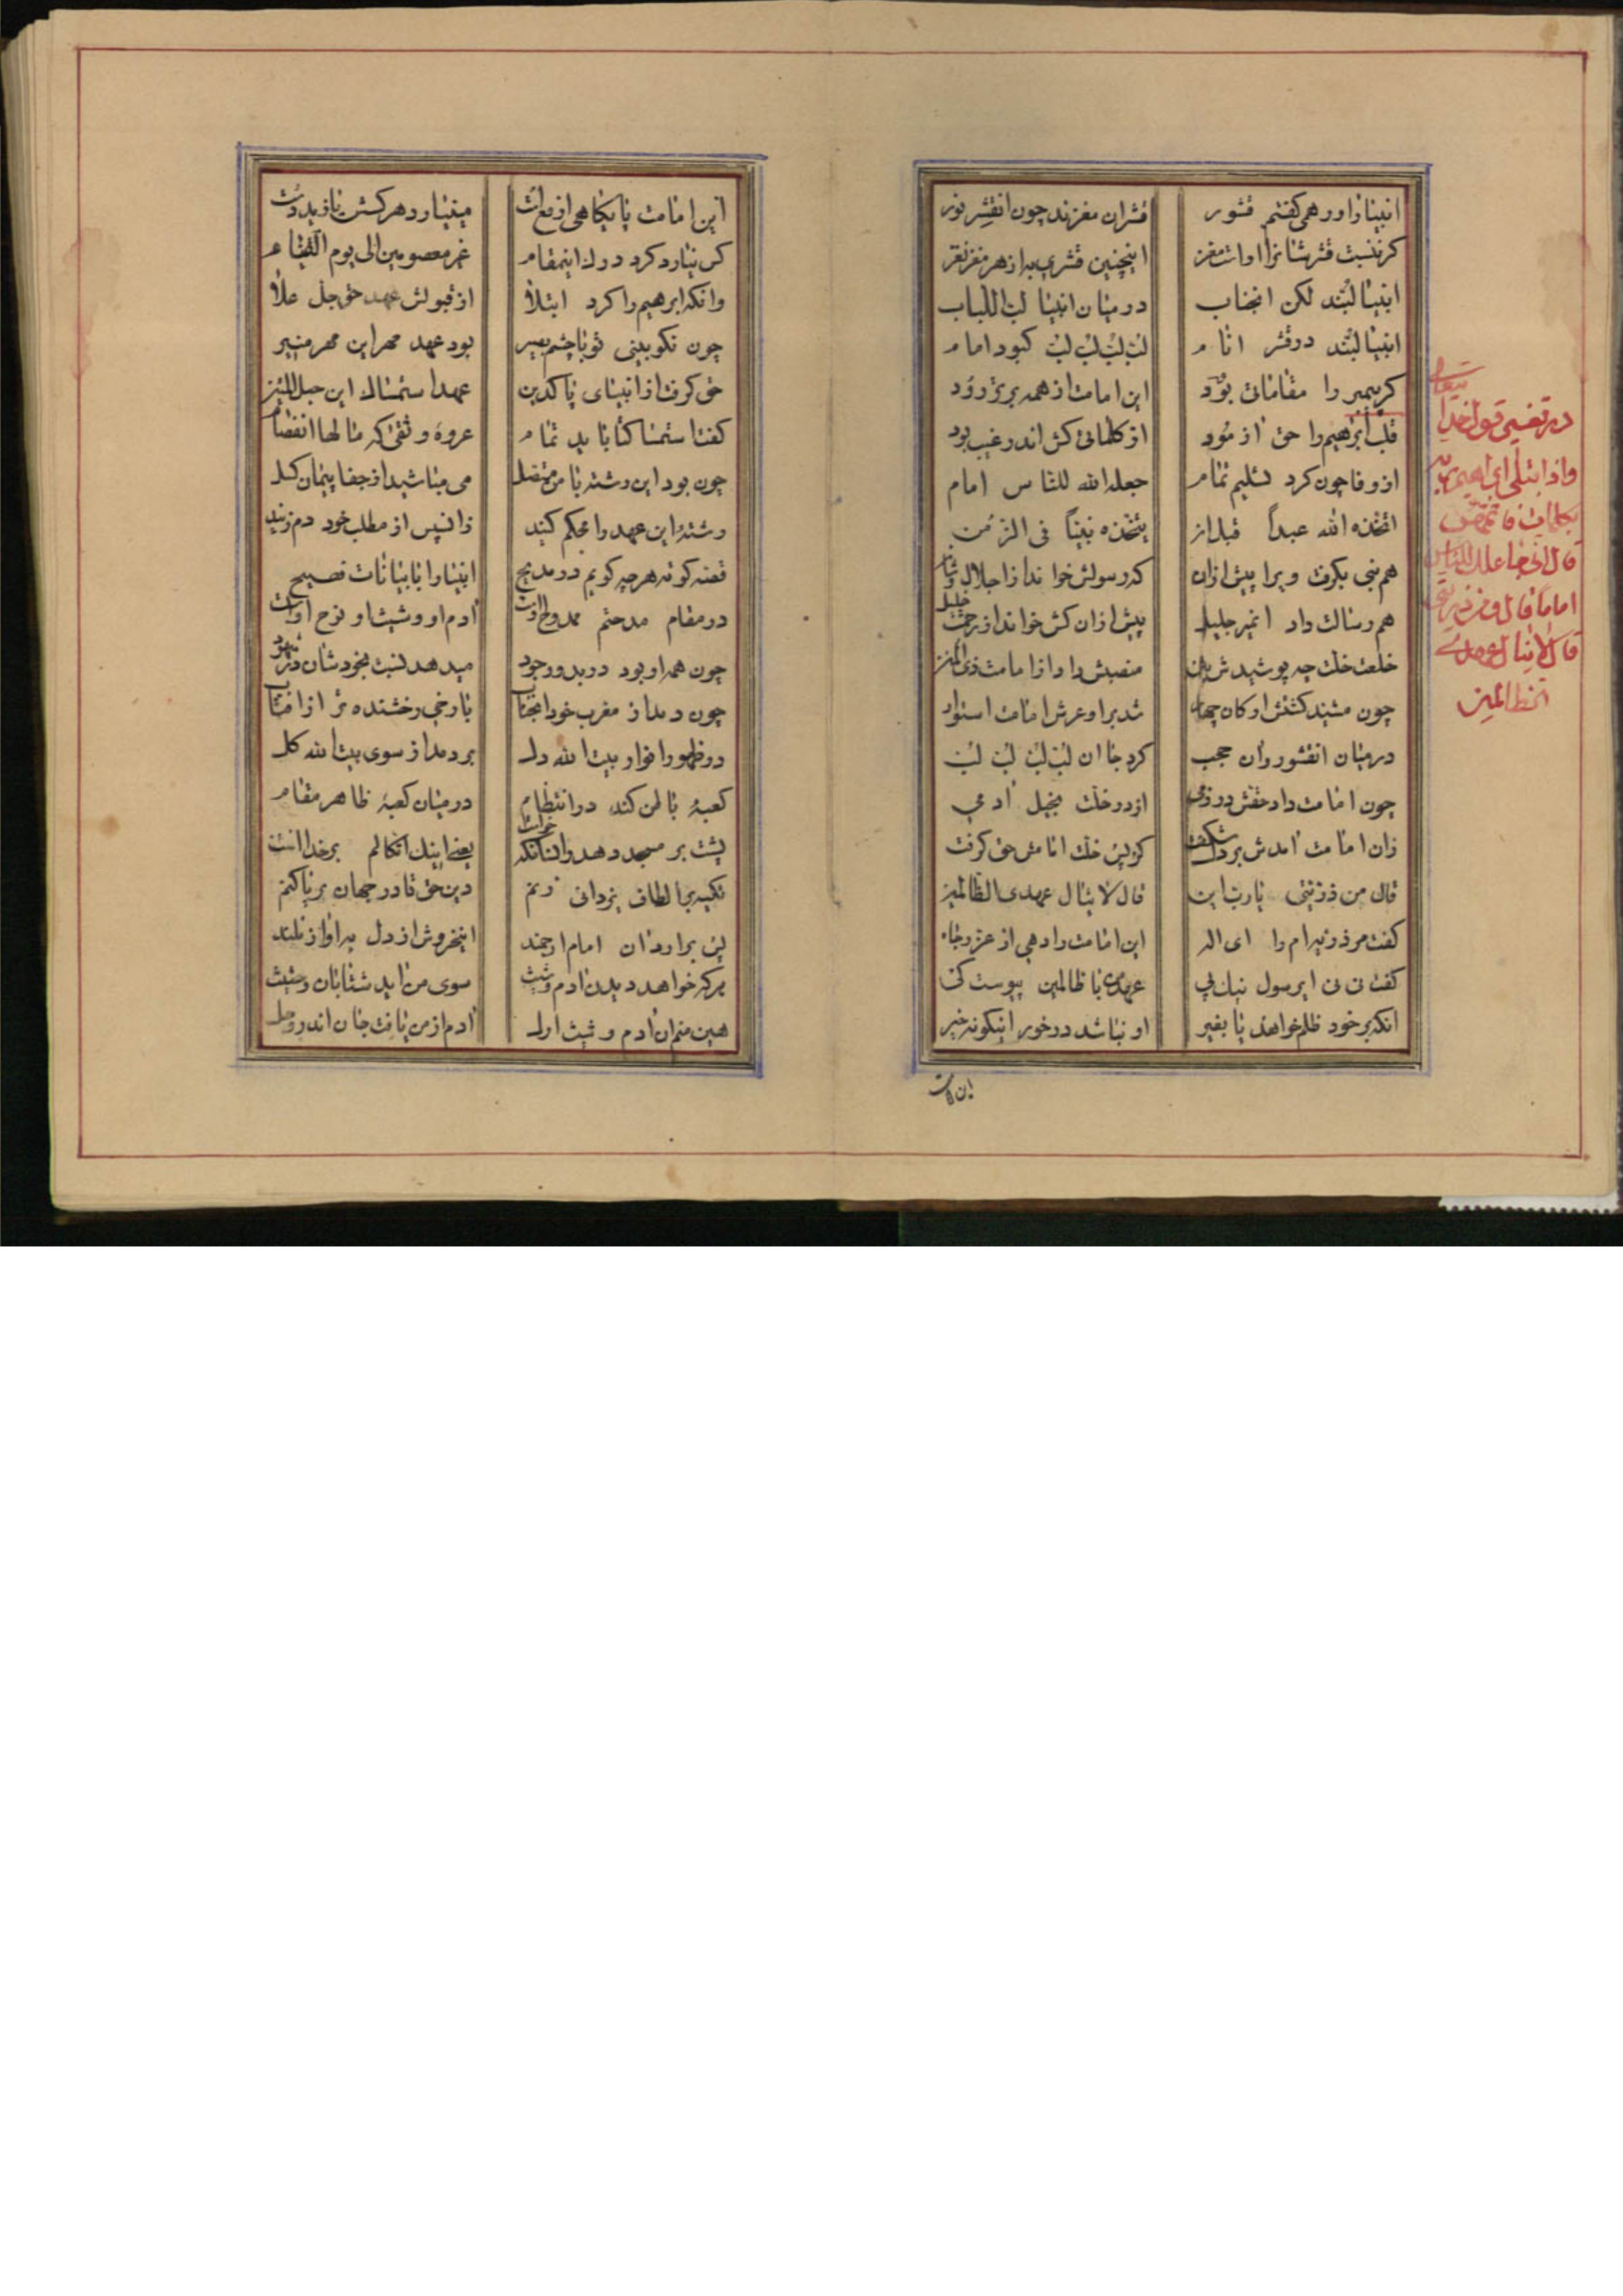 انبیا را ور همی گفتم قشور
قشر ان مغزند چون انقشر نور
کر نسبت قشرشان را او است مغز
اینچنین قشری به از هر مغز نغز
انبیا لبّند لکن انجناب
در میان انبیا لب اللباب
انبیا لبّند در قشر انام
لبّ لبّ لبّ لبّ کبود امام
کر پیمبر را مقاماتی بود
این امامت از همه برتر رود
قلب ابرهیم را حق ازمود
از کلماتی کش اندر غیب بود
از وفا چون کرد تسلیم تمام
جعله الله للناس امام
اتخذه الله عبداً قبل از
یتخذه نبیاً فی الزمن
هم نبی بکرفت ویرا پیش ازان
که رسولش خواند از اجلال و شان
هم رسالت داد انمیر جلیل
پیش ازان کش خواند از رحمت خلیل
خلعت خلت چه پوشیدش بتن
منصبش داد از امامت ذی المنن
چون مشید کشتش ارکان چهار
شد بر او عرش امامت استوار
در میان انقشور وان حجب
کرد جا ان لبّ لبّ لبّ لبّ
چون امامت داد حقش در زمی
از در خلت بخیل ادمی
زان امامت امدش بر دل شکفت
کز پس خلت امامش حق کرفت
قال من ذریتی یا رب این
قال لا ینال عهدی الظالمین
کفت مر ذریه ام را ای اله
این امامت را دهی از عز و جاه
کفت نی نی ایرسول نیک پی
عهد من با ظالمین پیوست کی
انکه بر خود ظلم خواهد یا بغیر
او نباشد در خور اینکونه خیر
این امامت
در تفسیر قول خدایتعالی
واذ ابتلی ابراهیم ربه
بکلمات فاتمهن
قال انی جاعلک للناس
اماماً قال ومن ذریتی
قال لا ینال عهدی
الظالمین
این امامت پایکاهی از
می نیارد هر کسش
کس نیارد کرد درک اینمقام
غیر معصومین الی یوم القیام
وانکه ابرهیم را کرد ابتلا
از قبولش عهد حق جل علا
چون نکو بینی تو با چشم بصیر
بود عهد مهر این مهر منیر
حق کرفت از انبیای پاکدین
عهد استمساک این حبل المتین
کفت استمساک تا باید تمام
عروه وثقی که ما لها انفصام
چون بود این رشته با من متصل
می مباشید از جفا پیمان کسل
رشته این عهد را محکم کنید
زانپس از مطلب خود دم زنید
قصه کوته هر چه کویم در مدیح
انبیا را با بیانات فصیح
در مقام مدحتم ممدوح اوست
ادم او و شیث او و نوح اوست
چون همه او بود در بدو وجود
میدهد نسبت بخودشان در شهود
چون دمد از مغرب خود انجناب
با رخی رخشنده تر از افتاب
در ظهور انوار بیت الله دل
بر دمد از سوی بیت الله کل
کعبه باطن کند در انتظام
در میان کعبه ظاهر مقام
پشت بر مسجد دهد
یعنی اینک اتکالم بر خداست
تکیه بر الطاف یزدانی زنم
دین حق تا در جهان بر پا کنم
پس برارد ان امام ارجمند
اینخروش از دل به اواز بلند
هر که خواهد دیدن ادم و شیث
سوی من اید شتابان و حثیث
هین منم ان ادم و شیث اول
ادم از من یافت جان اندر وحل